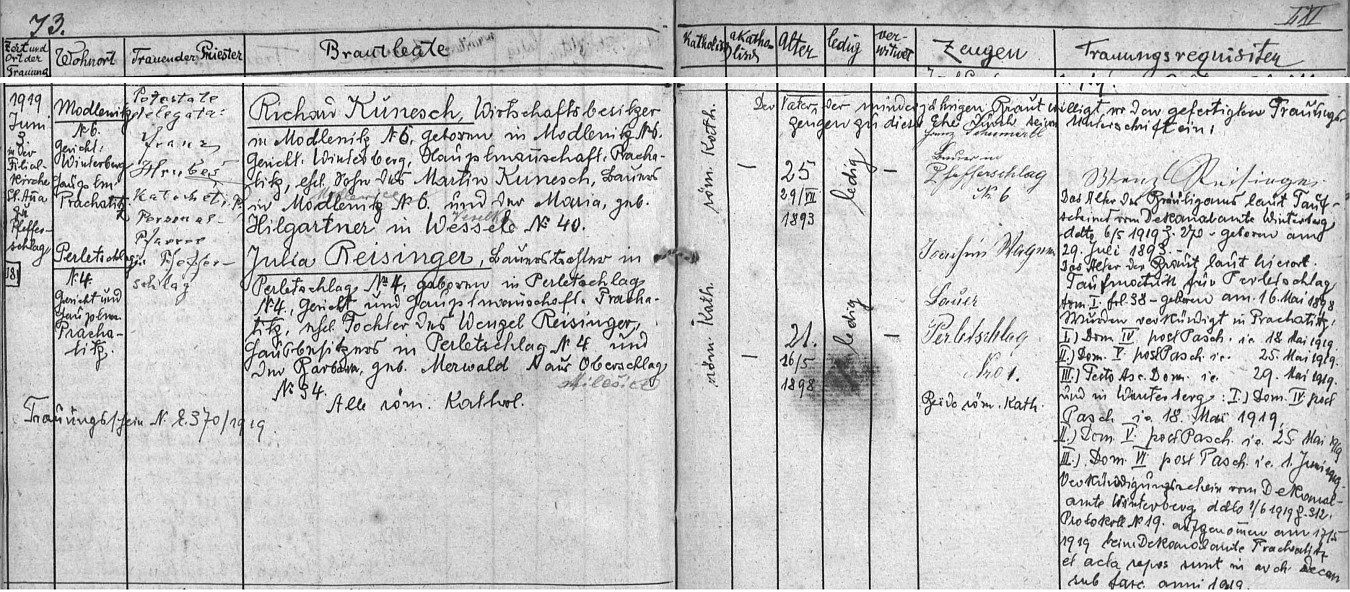 73.
LXXI
Zeit und
Ort der
Trauung
Wohnort
Trauender Priester
Brautleute
Katholisch
akatho-
lisch
Alter
ledig
ver-
witwet
Zeugen
Trauungsrequisiten
1919
Juni
in der
Filial-
kirche
St. Anna
zu
Pfeffer-
schlag
18
Modlenitz
N 6.
Gericht:
Winterberg
Hauptm.
Prachatitz
Perletschlag
N 4.
Gericht und
Hauptm.
Pracha-
titz.
Potestate
delegata:
Franz
Hrubeš
Katechet i. P.
Personal-
Pfarrer
in Pfeffer-
schlag
Richard Kunesch, Wirtschaftsbesitzer
in Modlenitz N 6, geboren in Modlenitz N 6.
Gericht: Winterberg, Hauptmannschaft: Pracha-
titz, ehel. Sohn des Martin Kunesch, Bauers
in Modlenitz N 6. und der Maria, geb.
Hilgartner in Wessele N 40.
Julia Reisinger, Bauerstochter in
Perletschlag N 4, geboren in Perletschlag
N 4, Gericht und Hauptmannschaft: Pracha-
titz, ehel. Tochter des Wenzel Reisinger,
Hausbesitzers in Perletschlag N 4 und
der Barbara, geb. Merwald aus Oberschlag
Milešice
N 34.
Alle röm. Kathol.
Trauungsschein N. E. 370/1919.
röm. Kath.
röm. Kath.
25
29/VII
1893
21.
16/5
1898
ledig
ledig
Der Vater der minderjährigen Braut willigt vor den gefertigten Trauungs-
zeugen zu dieser Ehe durch seine Unterschrift ein:
Bauer in
Pfefferschlag
N. 6
Joachim Wagner
Bauer
Perletschlag
Nro 1.
Beide röm. Kath.
Wenz Reisinger
Das Alter des Bräutigams laut Tauf-
schein vom Dekanalamte Winterberg
ddto 6/5 1919 Z. 270 - geboren am
29. Juli 1893.
Das Alter der Braut laut hierort.
Taufmatrik für Perletschlag
tom. I. fol. 38 - geboren am 16. Mai 1898
Wurden verkündigt in Prachatitz:
I.) Dom. IV post Pasch. i.e. 18 Mai 1919.
II.) Dom. V. post Pasch. i.e. 25. Mai 1919.
III.) Festo Asc. Dom. i.e. 29. Mai 1919.
und in Winterberg: I.) Dom. IV post
Pasch i.e. 18. Mai 1919,
II.) Dom. V. post Pasch. i.e. 25. Mai 1919
III.) Dom. VI post Pasch. i.e. 1. Juni 1919.
Verkündigungsschein vom Dekanal-
amte Winterberg ddto 1/6 1919 Z. 312.
Protokoll N 19. aufgenommen am 17/5
1919 beim Dekanalamte Prachatitz
et acta repos sunt in arch. decan
sub fasc. anni 1919.